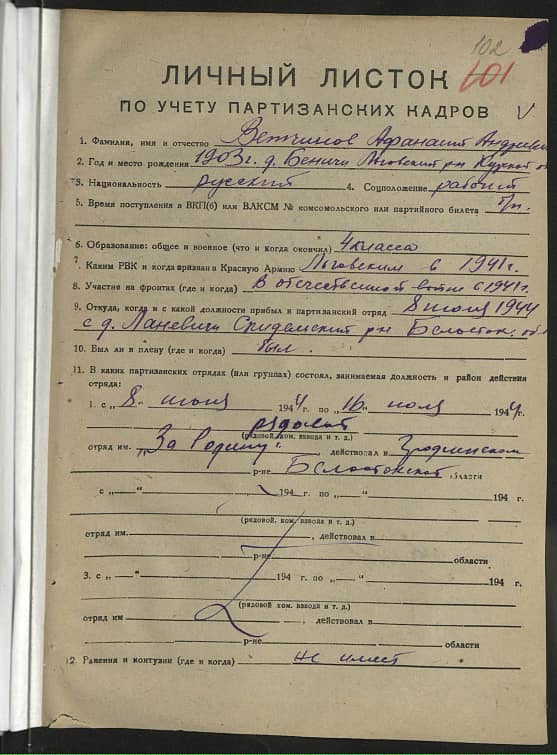 102
ЛИЧНЫЙ ЛИСТОК 101
ПО УЧЕТУ ПАРТИЗАНСКИХ КАДРОВ V
1. Фамилия, имя и отчество Афанасий Андрееви
2. Год и место рождения 1903 г. д. Беничи Льговский рн Курской об
3. Национальность русский 4. Соцположение рабочий
5. Время поступления в ВКП(б) или ВЛКСМ № комсомольского или партийного билета б/п.
6. Образование: общее и военное (что и когда окончил) 4 класса
7. Каким РВК и когда призван в Красную Армию Льговским в 1941 г.
8. Участие на фронтах (где и когда) В отечественной войне с 1941 г.
9. Откуда, когда и с какой должности прибыл в партизанский отряд 8 июня 1944
с д. Ланевичи Скидельский рн Белосток. об
10. Был ли в плену (где и когда) был.
11. В каких партизанских отрядах (или группах) состоял, занимаемая должность и район действия
отряда:
1. с „ 8 “ июня 194 4 г. по „ 16 “ июля 194 4 г.
рядовой
(рядовой, ком. взвода и т. д.)
отряд им. „За Родину“ действовал в Гродненском
р-не Белостокской области
с „ “ 194 г. по „ “ 194 г.
(рядовой, ком. взвода и т. д.)
отряд им. , действовал в
р-не области
3. с „ “ 194 г. по „ “ 194 г.
(рядовой, ком. взвода и т. д.)
отряд им , действовал в
р-не области
12. Ранения и контузии (где и когда) не имеет